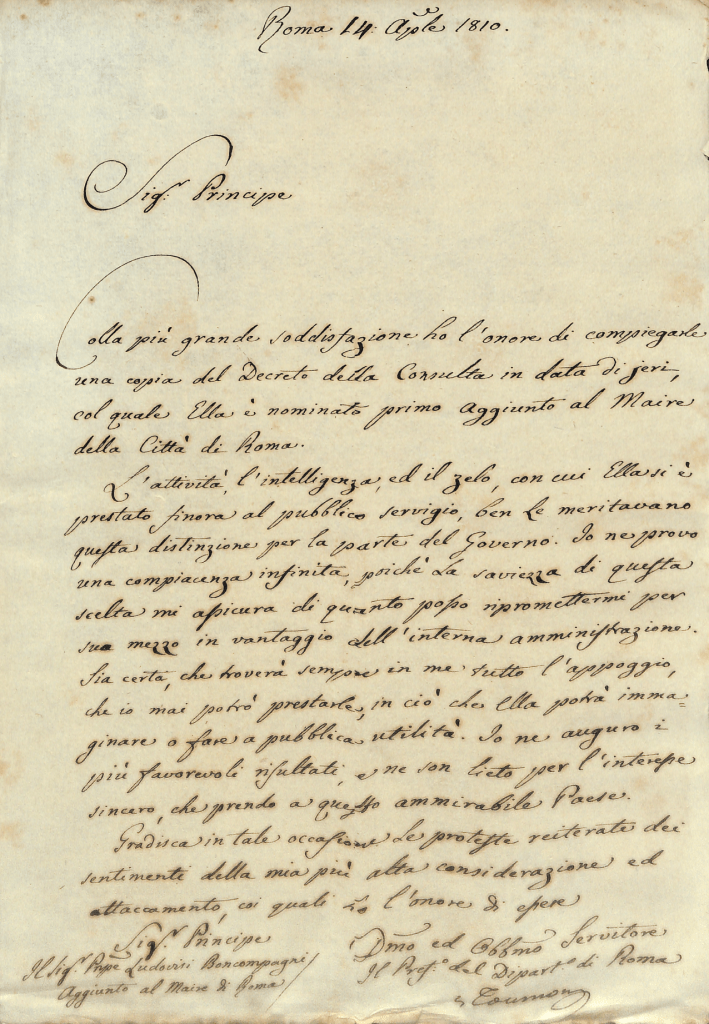 Roma 14: Aple 1810.
Sigr: Principe
Colla più grande soddisfazione ho l'onore di compiegarle
una copia del Decreto della Consulta in data di jeri,
col quale Ella è nominato primo Aggiunto al Maire
della Città di Roma.
L'attività, l'intelligenza, ed il zelo, con cui Ella si è
prestato finora al pubblico servigio, ben Le meritavano
questa distinzione per la parte del Governo. Io ne provo
una compiacenza infinita, poichè La saviezza di questa
scelta mi assicura di quanto posso ripromettermi per
suo mezzo in vantaggio dell'interna amministrazione.
Sia certa, che troverà sempre in me tutto l'appoggio,
che io mai potrò prestarle, in ciò che Ella potrà imma=
ginare o fare a pubblica utilità. Io ne auguro i
più favorevoli risultati, e ne son lieto per l'interesse
sincero, che prendo a questo ammirabile Paese.
Gradisca in tale occasione Le proteste reiterate dei
sentimenti della mia più alta considerazione ed
attaccamento, coi quali ho l'onore di essere
Sigr. Principe
Dmo ed Obbmo Servitore
Il Sigr. Pnpe Ludovisi Boncompagni
Il Prefo. del Diparto. di Roma
Aggiunto al Maire di Roma
Tournon